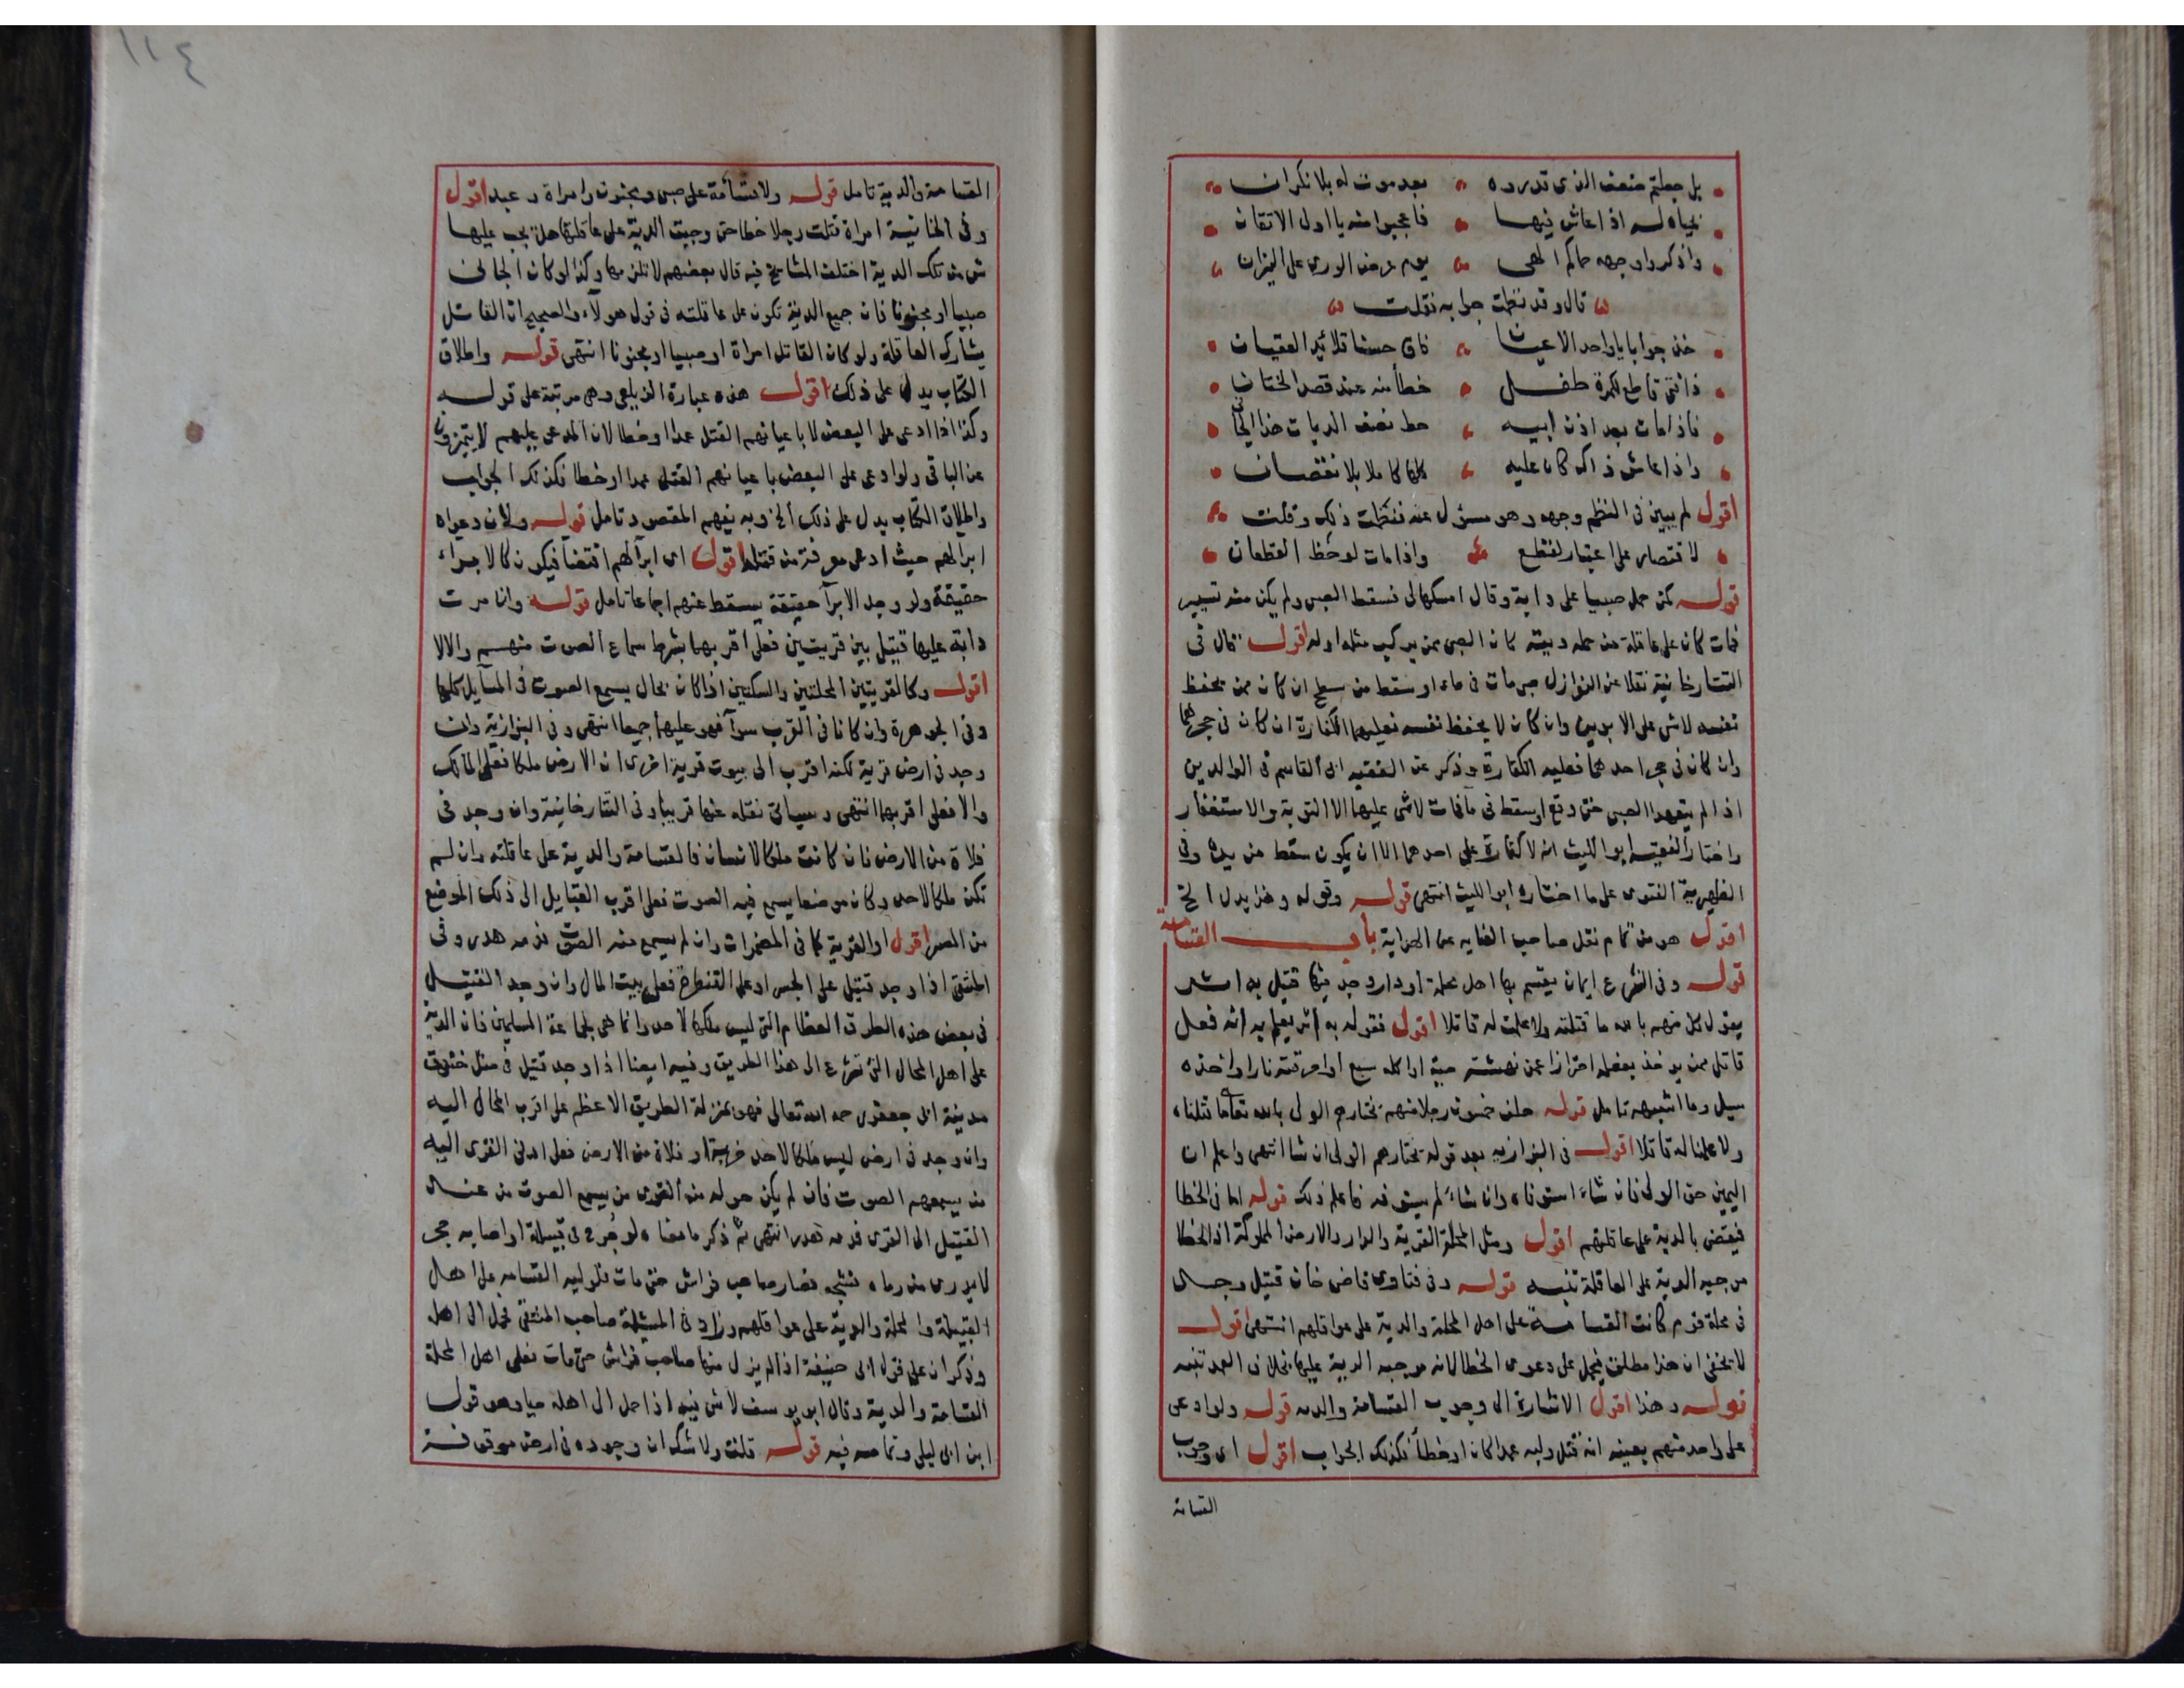 بل جعلتم ضعف الذى قدروه بعد موت له بلا نكران
لحياة له اذا عاش فيها فاعجبوا منه يا اولى الاتقان
واذكروا وجهه حماكم الهى يوم عرض الورى على الميزان
قال وقد نظمت جوابه فقلت
خذ جوابا يا واحد الاعيان فاق حسنا قلائد العقيان
ذا فتى قاطع لكمرة طفل خطأ منه عند قصد الختان
فاذا مات بعد اذن ابيه حط نصف الديات هذا الجانى
واذا عاش ذاك كان عليه كلها كاملا بلا نقصان
اقول لم يبين فى النظم وجهه وهو مسؤل عنه فنظمت ذلك وقلت
لاقتصار على اعتبار لقطع واذا مات لوحظ القطعان
قوله كمن حمل صبيا على دابة وقال امسكها لى فسقط الصبى ولم يكن منه تسيير
فمات كان على عاقلة من حمله ديته كان الصبى ممن يركب مثله اولا اقول قال فى
التتارخانية نقلا عن النوازل صبى مات فى ماء او سقط من سطح ان كان ممن يحفظ
نفسه لا شى على الابوين وان كان لا يحفظ نفسه فعليهما الكفارة ان كان فى حجرهما
وان كان فى حجر احدهما فعليه الكفارة وذكر عن الفقيه ابى القاسم فى الوالدين
اذا لم يتعهدا الصبى حتى وقع او سقط فى ما فمات لا شى عليهما الا التوبة والاستغفار
واختار الفقيه ابو الليث انه لا كفارة على احدهما الا ان يكون سقط من يده وفى
الظهيرية الفتوى على ما اختاره ابو الليث انتهى قوله وقوله وهذا يدل الخ
اقول هو من تمام نقل صاحب الغايه عن الهداية باب القسامة
قوله وفى الشرع ايمان يقسم بها اهل محلة او دار وجد فيها قتيل به اثر
يقول كل منهم بالله ما قتلته ولا علمت له قاتلا اقول فقوله به اثر يعلم به انه فعل
قاتل ممن يوخذ بفعله احترازا عن نهشته حية او اكله سبع او احرقته نار او اخذه
سيل وما اشبهه تامل قوله حلف خمسون رجلا منهم يختارهم الولى بالله تعالى ما قتلناه
ولا علمنا له قاتلا اقول فى البزازيه بعد قوله يختارهم الولى ان شا انتهى واعلم ان
اليمين حق الولى فان شاء استوفاه وان شاء لم يستوفه فاعلم ذلك قوله اما فى الخطا
فيقضى بالدية على عاقلتهم اقول ومثل المحلة القرية والدار والارض المملوكة اذ الخطا
موجبه الدية على العاقلة تنبه قوله وفى فتاوى قاضى خان قتيل وجد
فى محلة قوم كانت القسامة على اهل المحلة والدية على عواقلهم انتهى اقول
لا يخفى ان هذا مطلق فيحمل على دعوى الخطا لانه موجبه الدية عليها بخلاف العمد تنبه
قوله وهذا اقول الاشارة الى وجوب القسامة والديه قوله ولو ادعى
على واحد منهم بعينه انه قتل وليه عمدا كان او خطأ فكذلك الجواب اقول اى وجوب
القسامة
١١٤
القسامة والدية تامل قوله ولا قسامة على صبى ومجنون وامراة وعبد اقول
وفى الخانية امراة قتلت رجلا خطا حتى وجبت الدية على عاقلتها هل يجب عليها
شى من تلك الدية اختلف المشايخ فيه قال بعضهم لا تلزمها وكذا لو كان الجانى
صبيا او مجنونا فان جميع الدية تكون على عاقلته فى قول هولاء والصحيح ان القاتل
يشارك العاقلة ولو كان القاتل امراة او صبيا او مجنونا انتهى قوله واطلاق
الكتاب يدل على ذلك اقول هذه عبارة الزيلعى وهى مرتبة على قوله
وكذا اذا ادعى على البعض لا باعيانهم القتل عمدا او خطا لان المدعى عليهم لا يتميزون
عن الباقى ولو ادعى على البعض باعيانهم القتل عمدا او خطا فكذلك الجواب
واطلاق الكتاب يدل على ذلك الخ وبه يفهم المقصود تامل قوله ولان دعواه
ابرا لهم حيث ادعى معرفة من قتله اقول اى ابرآ لهم اقتضا فيكون كالابراء
حقيقة ولو وجد الابرآ حقيقة يسقط عنهم اجماعا تامل قوله وان مرت
دابة عليها قتيل بين قريتين فعلى اقربهما بشرط سماع الصوت منهم والا لا
اقول وكالقريتين المحلتين والسكتين اذا كان بحال يسمع الصوت فى المسايل كلها
وفى الجوهرة وان كانا فى القرب سوآ فهو عليهما جميعا انتهى وفى البزازية وان
وجد فى ارض قرية لكنه اقرب الى بيوت قرية اخرى ان الارض ملكا فعلى المالك
والا فعلى اقربهما انتهى وسياتى نقله عنها قريبا وفى التتارخانية وان وجد فى
فلاة من الارض فان كانت ملكا لانسان فالقسامة والدية على عاقلته وان لم
تكن ملكا لاحد وكان موضعا يسمع فيه الصوت فعلى اقرب القبايل الى ذلك الموضع
من المصر اقول او القرية كما فى المضمرات وان لم يسمع منه الصوت فدمه هدر وفى
المنتقى اذا وجد قتيل على الجسر او على القنطرة فعلى بيت المال وان وجد القتيل
فى بعض هذه الطرق العظام التى ليس ملكها لاحد وانما هى لجماعة المسلمين فان الدية
على اهل المحال التى تشرع الى هذا الطريق وفيه ايضا اذا وجد قتيل فى مثل خندق
مدينة ابى جعفر رحمه الله تعالى فهو بمنزلة الطريق الاعظم على اقرب المحال اليه
وان وجد فى ارض ليس ملكا لاحد خربة او فلاة من الارض فعلى ادنى القرى اليه
من يسمعهم الصوت فان لم يكن حوله من القرى من يسمع الصوت من عند
القتيل الى القرى فدمه هدر انتهى ثم ذكر ما معناه لو جرح فى قبيلة او اصابه حجر
لا يدرى من رماه فشجه فصار صاحب فراش حتى مات فلوليه القسامه على اهل
القبيلة والمحلة والدية على عواقلهم وزاد فى المسئلة صاحب المنتقى فحمل الى اهله
وذكر ان على قول ابى حنيفة اذا لم يزل منها صاحب فراش حتى مات فعلى اهل المحلة
القسامة والدية وقال ابو يوسف لا شى فيه اذا حمل الى اهله حيا وهو قول
ابن ابى ليلى وتمامه فيه قوله قلت ولا شك ان وجوده فى ارض موقوفة